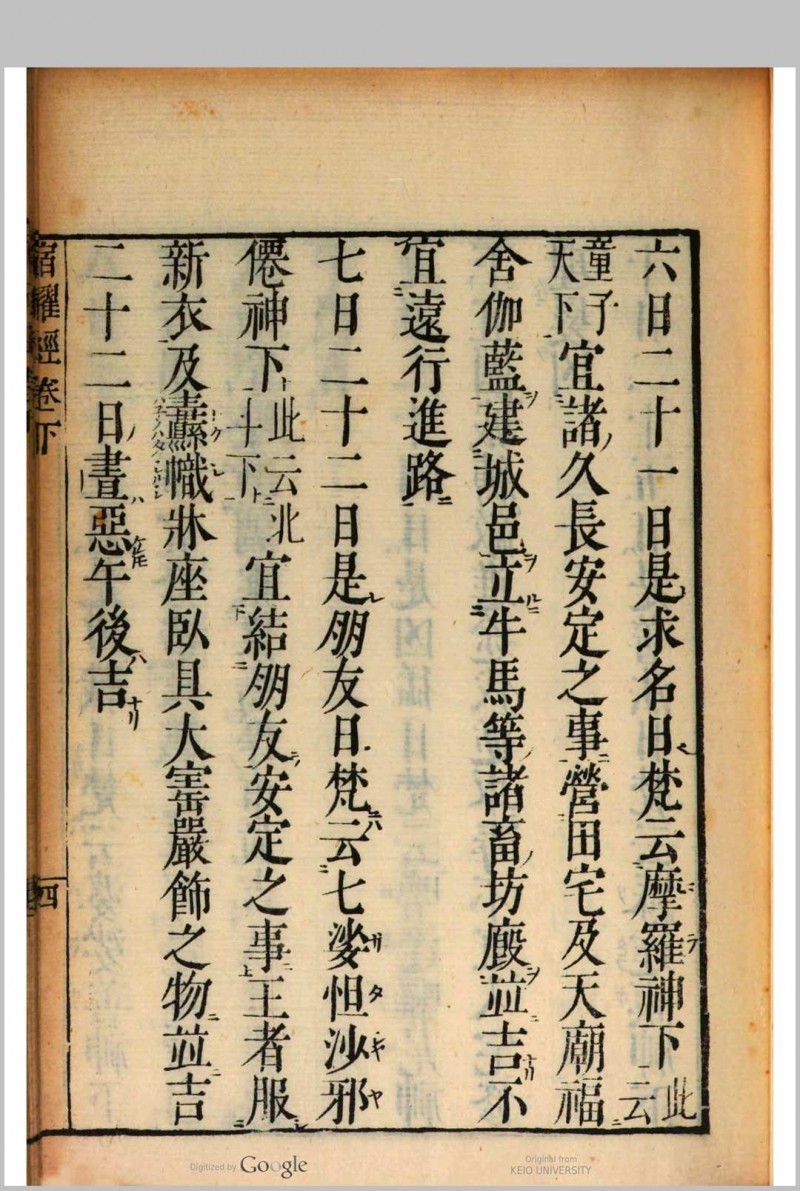 六日二十一日是求名日梵云摩羅神下此云
童子天下宜諸久長安定之事營田宅及天廟福
舍伽藍建城邑立牛馬等諸畜坊廐並吉不
宜遠行進路
七日二十二日是朋友日梵云七娑怛沙邪
僊神下此云北斗下宜結朋友安定之事王者服
新衣及纛幟牀座臥具大害嚴飾之物並吉
二十二日晝惡午後吉
宿曜經卷下
四
Digitized by Google
Original from
KEIO UNIVERSITY